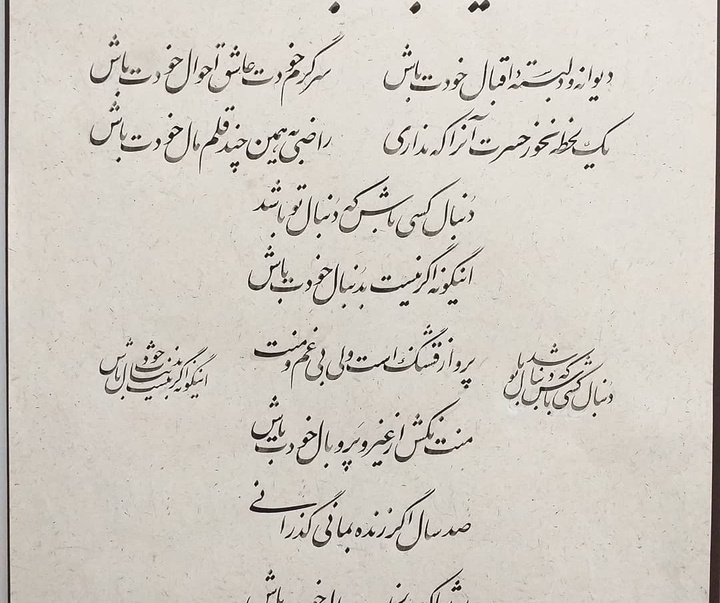 دیوانه و دلبسته اقبال خودت باش
سرگرم خودت عاشق احوال خودت باش
یک لحظه نخور حسرت آنرا که نداری
راضی به همین چند قلم مال خودت باش
دنبال کسی باش که دنبال تو باشد
اینگونه اگر نیست بدنبال خودت باش
دنبال کسی باش که دنبال تو باشد
پرواز قشنگ است ولی بی غم و منت
اینگونه اگر نیست بدنبال خودت باش
منت نکش از غیر و پر و بال خودت باش
صد سال اگر زنده بمانی گذرانی